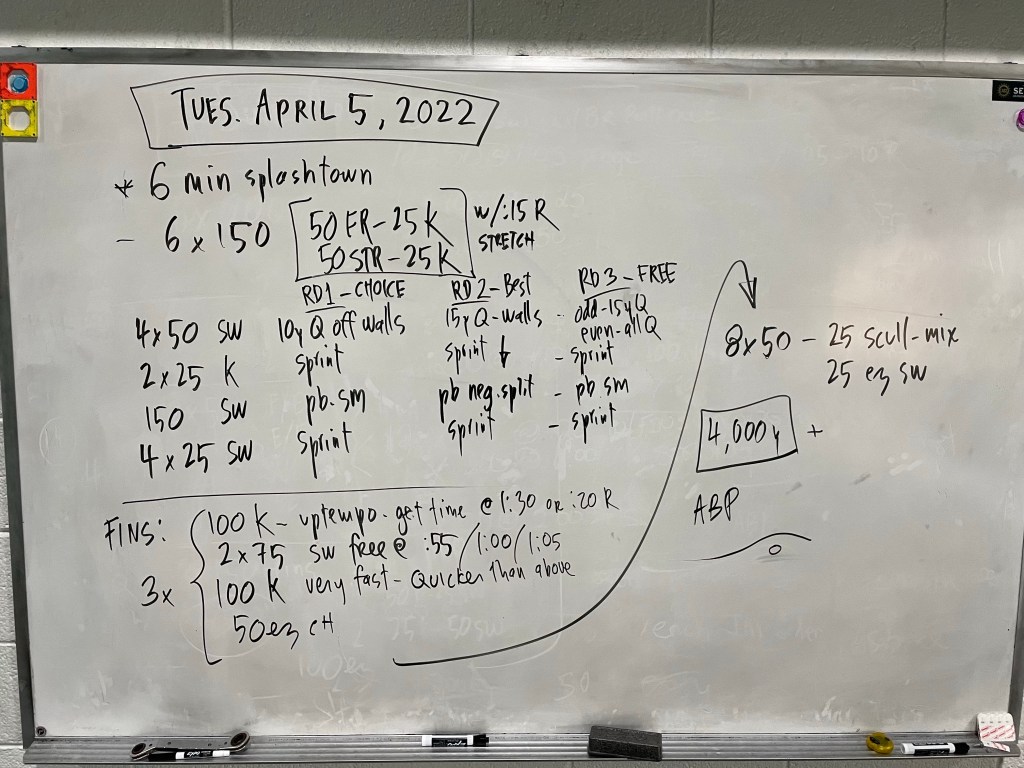 TUES. APRIL 5, 2022
* 6 min splashtown
- 6 x 150 [50 FR - 25 K w/:15 R
50 STR - 25 K] STRETCH
RD1 - CHOICE RD2 - Best RD3 - FREE
4 x 50 SW 10y Q off walls 15y Q - walls - odd - 15y Q
even - all Q
2 x 25 K sprint sprint ↓ - sprint
150 SW pb.sm pb neg.split - pb sm
4 x 25 SW sprint sprint - sprint
FINS: 3x
100 K - uptempo - get time @ 1:30 or :20 R
2 x 75 SW free @ :55 / 1:00 / 1:05
100 K very fast - Quicker than above
50 ez CH
8x50 - 25 scull-mix
25 ez sw
4,000y +
ABP
SE